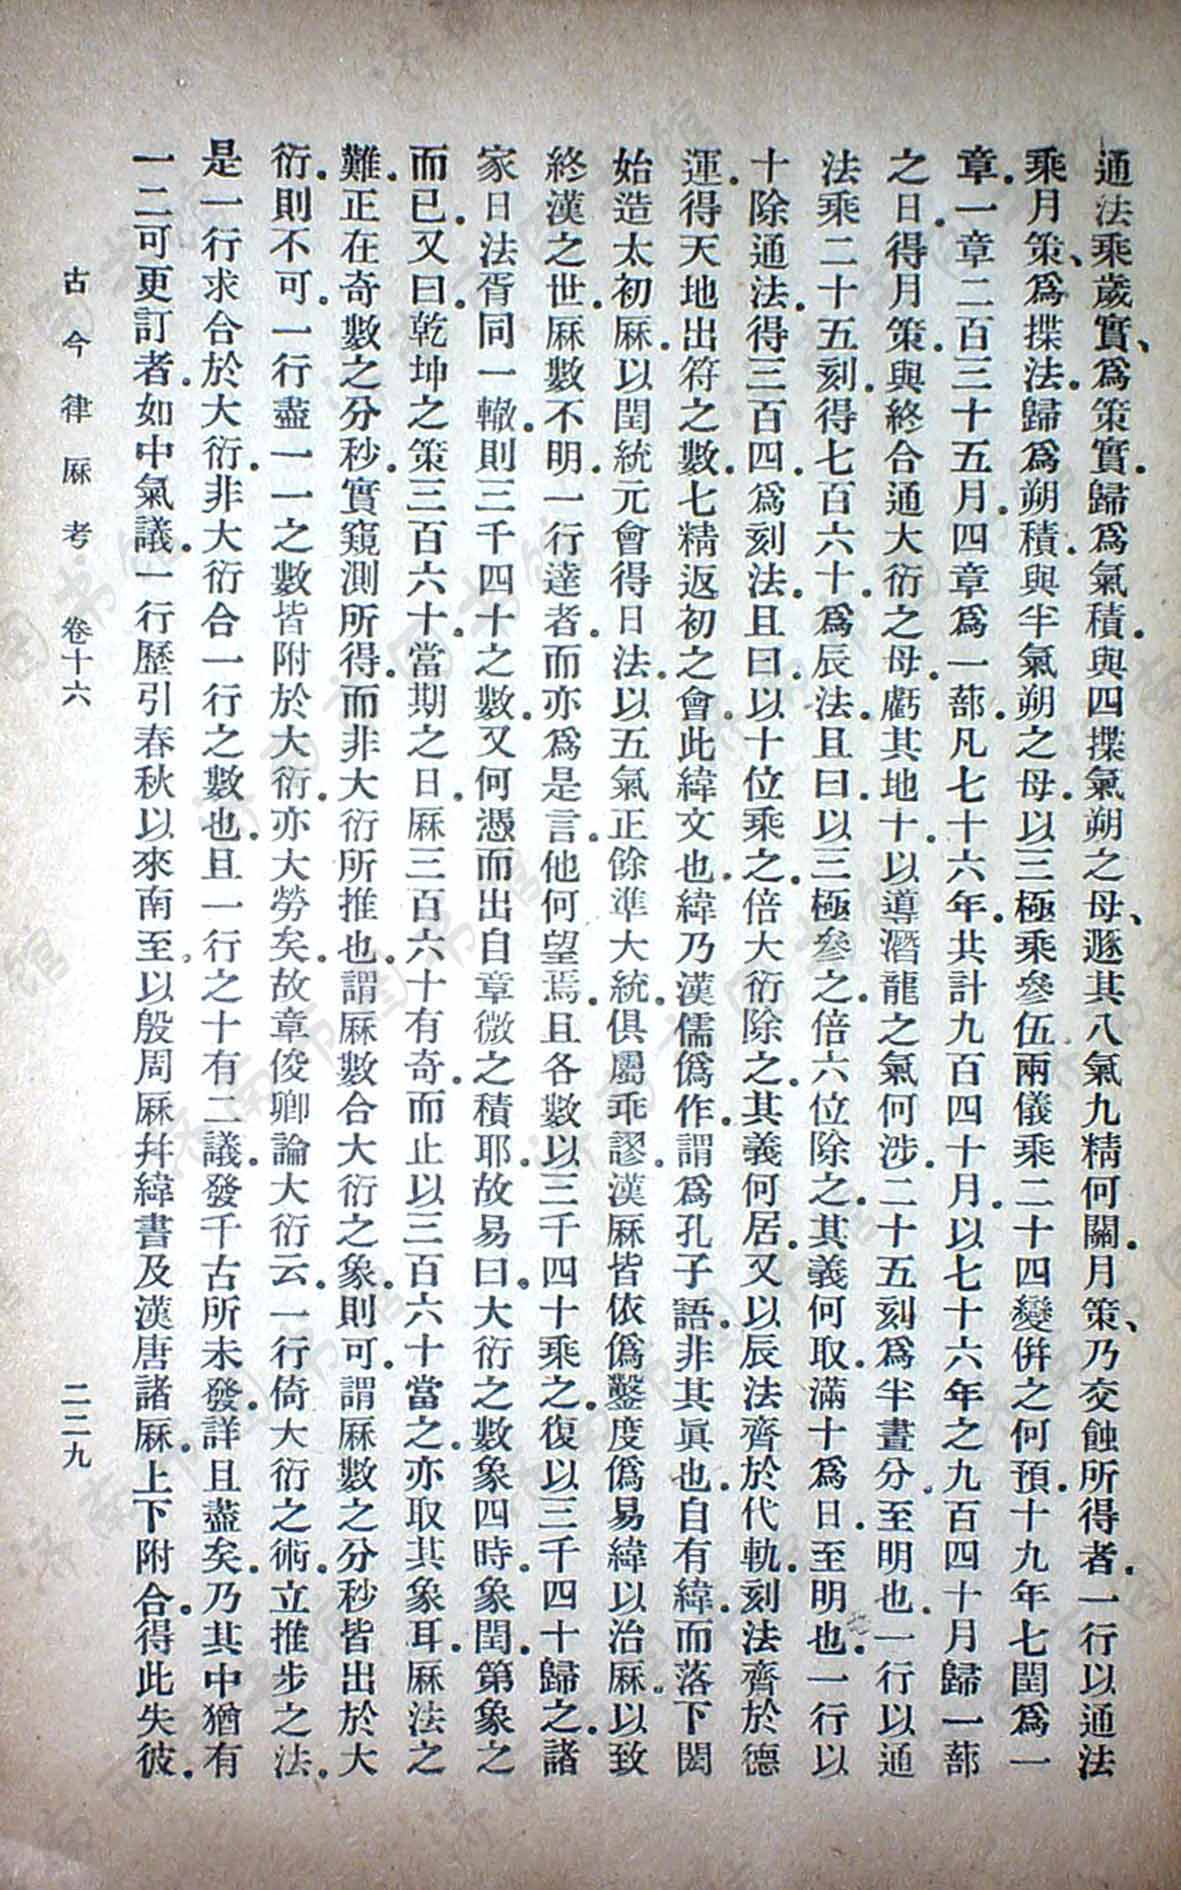 通法乘歲實、爲策實。歸爲氣積。與四揲氣朔之母、遯其八氣九精何關。月策、乃交蝕所得者。一行以通法
乘月策、爲揲法。歸爲朔積。與半氣朔之母。以三極乘參伍兩儀乘二十四變倂之何預。十九年七閏爲一
章。一章二百三十五月。四章爲一蔀。凡七十六年。共計九百四十月。以七十六年之九百四十月歸一蔀
之日。得月策。與終合通大衍之母。虧其地十。以導潛龍之氣何涉。二十五刻爲半晝分。至明也。一行以通
法乘二十五刻。得七百六十。爲辰法。且曰。以三極參之。倍六位除之。其義何取。滿十爲日。至明也。一行以
十除通法。得三百四。爲刻法。且曰。以十位乘之。倍大衍除之。其義何居。又以辰法齊於代軌。刻法齊於德
運。得天地出符之數。七精返初之會。此緯文也。緯乃漢儒僞作。謂爲孔子語。非其眞也。自有緯。而落下閎
始造太初厤。以閏統元會得日法。以五氣正餘準大統。俱屬乖謬。漢厤皆依僞鑿度僞易緯以治厤。以致
終漢之世。厤數不明。一行達者。而亦爲是言。他何望焉。且各數以三千四十乘之。復以三千四十歸之。諸
家日法胥同一轍。則三千四十之數。又何憑而出自章微之積耶。故易曰。大衍之數象四時。象閏。第象之
而已。又曰。乾坤之策三百六十。當期之日。厤三百六十有奇。而止以三百六十當之。亦取其象耳。厤法之
難。正在奇數之分秒。實窺測所得。而非大衍所推也。謂厤數合大衍之象。則可。謂厤數之分秒皆出於大
衍。則不可。一行盡一一之數皆附於大衍。亦大勞矣。故章俊卿論大衍云。一行倚大衍之術。立推步之法。
是一行求合於大衍。非大衍合一行之數也。且一行之十有二議。發千古所未發。詳且盡矣。乃其中猶有
一二可更訂者。如中氣議。一行歷引春秋以來南至。以殷周厤幷緯書及漢唐諸厤。上下附合。得此失彼。
古今律厤考 卷十六 二二九